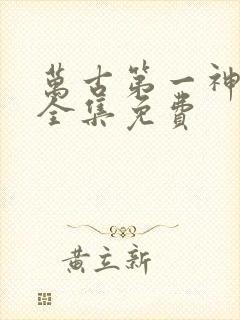 萬古第一神
全集免費
黃立新